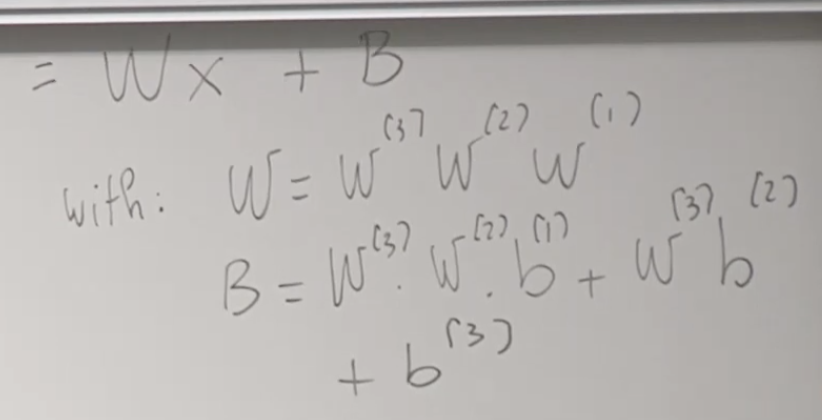 = Wx + B
with: W = W^(3) W^(2) W^(1)
B = W^(3) . W^(2) . b^(1) + W^(3) b^(2)
+ b^(3)